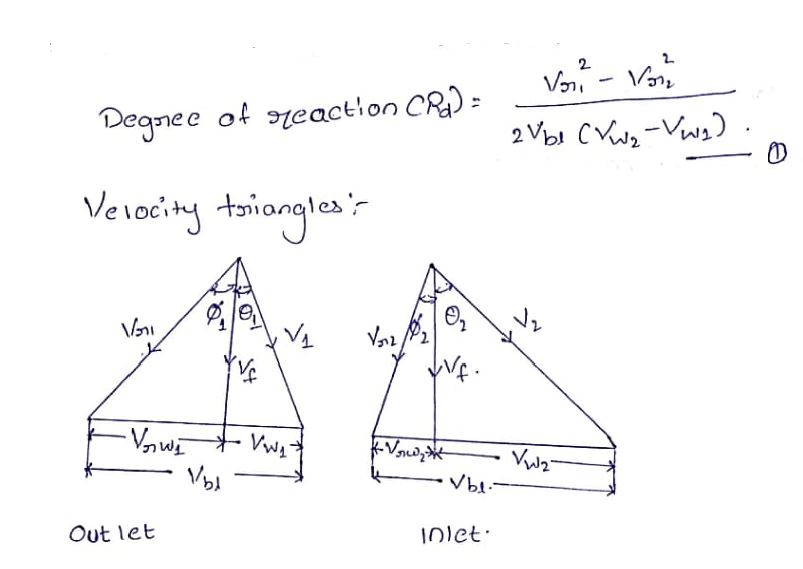 Degree of reaction (Rd) = Vr₁² - Vr₂² / 2Vbl (Vw₂ - Vw₁) . ①
Velocity triangles :-
ϕ₁ θ₁ Vr1 V₁ Vf
Vrw₁ Vw₁
Vbl
Outlet
ϕ₂ θ₂ Vr2 V₂ Vf.
Vrw₂ Vw₂
Vbl.
Inlet.